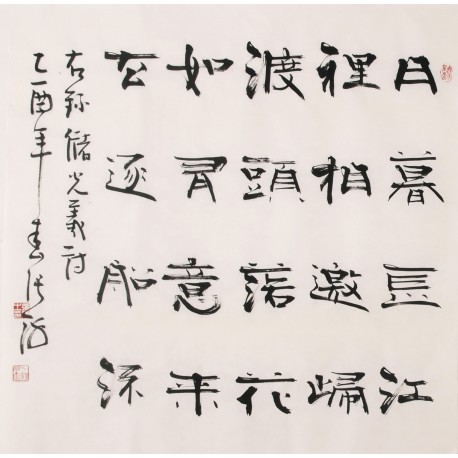 日暮長江
裡相邀歸
渡頭落花
如有意来
去逐船流
右錄儲光義詩
乙酉年春